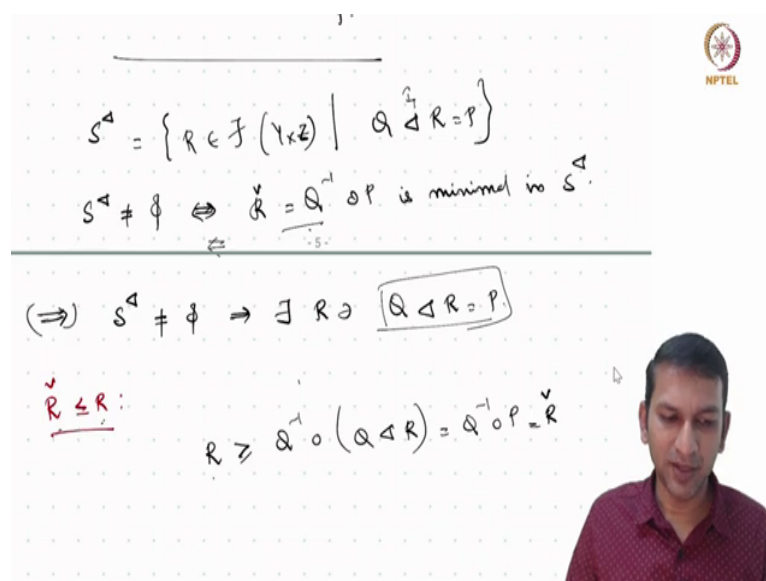 NPTEL
S^◁ = { R ∈ F (Y×Z) | Q ◁ R = P }
S^◁ ≠ ϕ ⇔ Ř = Q^-1 o P is minimal in S^◁.
⇐
- 5 -
(⇒) S^◁ ≠ ϕ ⇒ ∃ R ∋ Q ◁ R = P.
Ř ≤ R :
R ≥ Q^-1 o (Q ◁ R) = Q^-1 o P = Ř